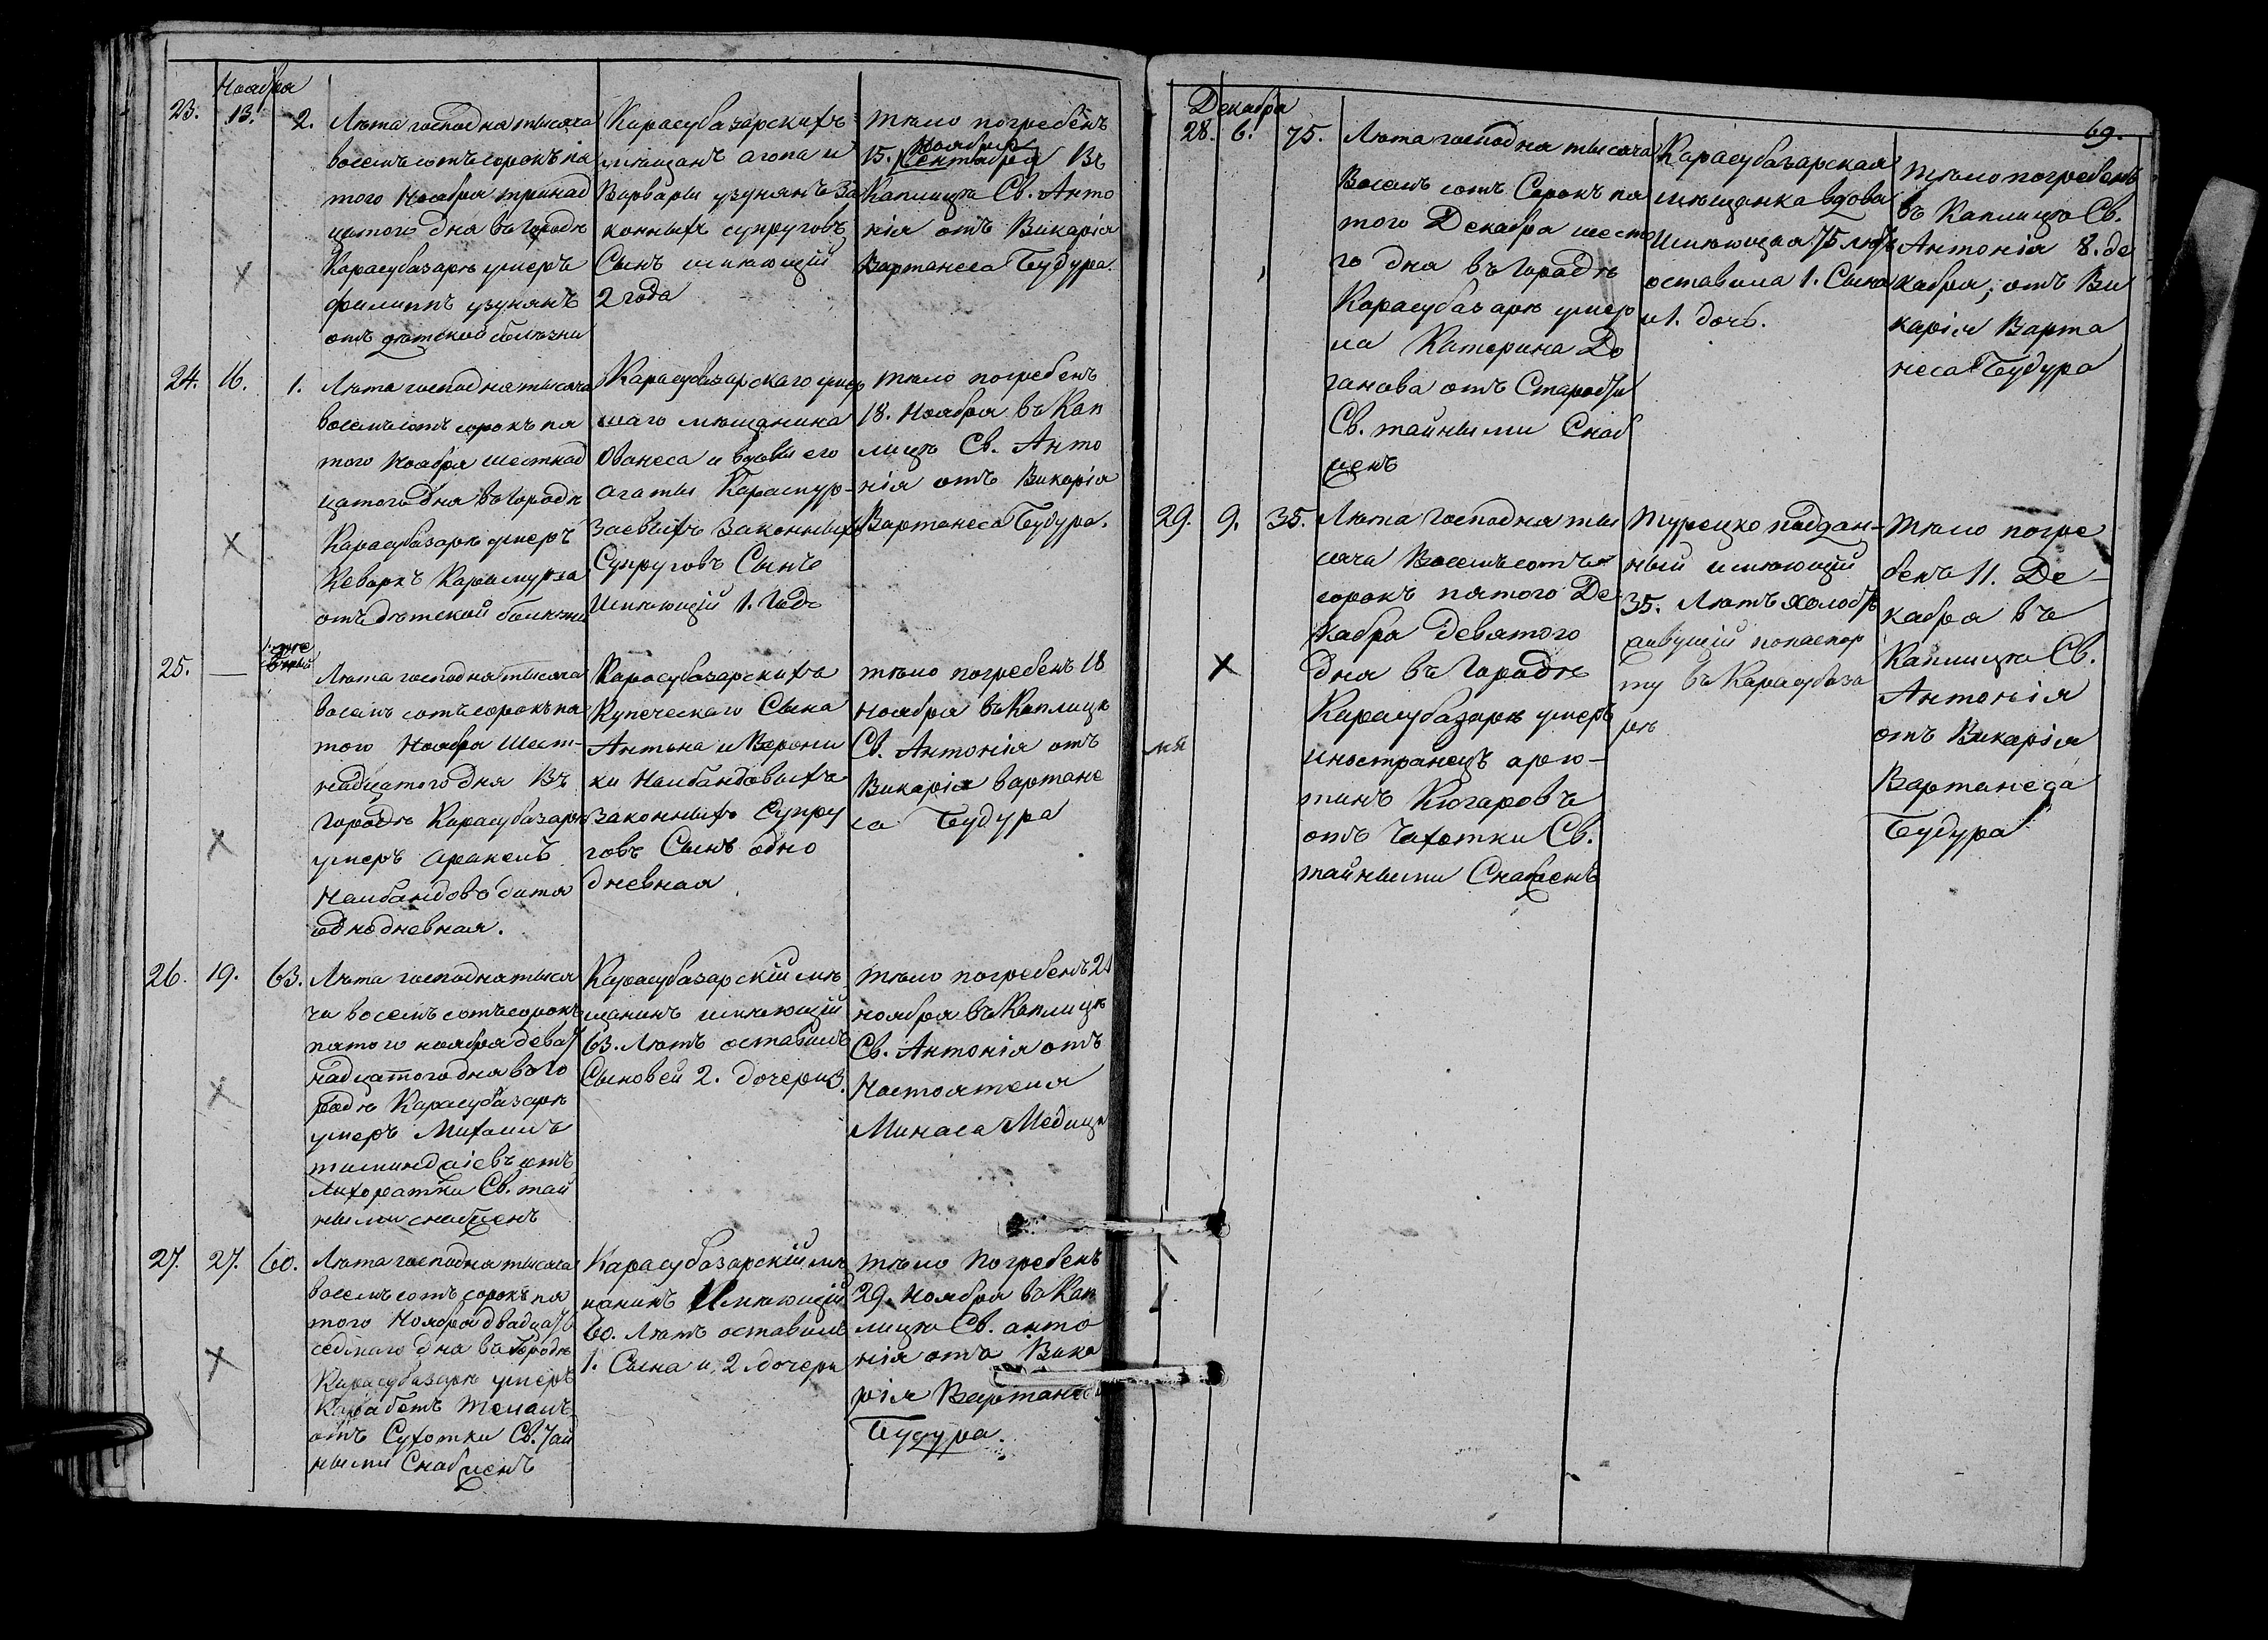 Ноября
23. 13. 2.
Лѣта господня тысяча
восемъ сотъ сорокъ пя
того Ноября тринад
цатого дня въ городѣ
Карасубазарѣ умеръ
филиппъ узунянъ
отъ дѣтской болѣзни
Карасубазарскихъ
мѣщанъ агопа и
Варвары узунянъ за
конныхъ супруговъ
Сынъ имѣющій
2 года
тѣло погребенъ
Ноября
15. Сентября Въ
Каплицѣ Св. Анто
нія отъ Викарія
Вартанеса Тудура.
24. 16. 1.
Лѣта господня тысяча
восемъ сотъ сорокъ пя
того Ноября шестнад
цатого дня въ городѣ
Карасубазарѣ умеръ
Кеваркъ Карамурза
отъ дѣтской болѣзни
Карасубазарскаго умер
шаго мѣщанина
Ованеса и вдовы его
агаты Карамур-
заевыхъ Законныхъ
Супруговъ Сынъ
Имѣющій 1. Годъ
тѣло погребенъ
18. Ноября въ Кап
лицѣ Св. Анто
нія отъ Викарія
Вартанеса Тудура.
25. —
Лѣта господня тысяча
восемъ сотъ сорокъ пя
того Ноября Шест-
надцатого дня Въ
городѣ Карасубазарѣ
умеръ Аракелъ
Налбандовъ дитя
однодневная.
Карасубазарскихъ
Купеческаго Сына
Антона и Верони
ки Налбандовыхъ
законныхъ Супру
говъ Сынъ одно
дневная
тѣло погребенъ 18
Ноября въ Каплицѣ
Св. Антонія отъ
Викарія Вартане
са Тудура
26. 19. 63.
Лѣта господня тыся
ча восемъ сотъ сорокъ
пятого ноября девят
надцатого дня въ го
родѣ Карасубазарѣ
умеръ Михаилъ
отъ
лихоратки Св. тай
ными снабженъ
Карасубазарскій мѣ
щанинъ имѣющій
63. Лѣтъ оставилъ
Сыновей 2. дочери 3.
тѣло погребенъ 21
ноября въ Каплицѣ
Св. Антонія отъ
Настоятеля
Минаса Медици
27. 27. 60.
Лѣта господня тысяча
восемъ сотъ сорокъ пя
того Ноября двадцать
седмаго дня въ Городѣ
Карасубазарѣ умеръ
Карабетъ
отъ Сухотки Св. Тай
ными Снабженъ
Карасубазарскій мѣ
щанинъ Имѣющій
60. Лѣтъ оставилъ
1. Сына и 2. дочери
тѣло погребенъ
29. Ноября въ Кап
лицѣ Св. анто
нія отъ Вика
рія Вартанеса
Тудура.
69.
Декабря
28. 6. 75.
Лѣта господня тысяча
Восемъ сотъ Сорокъ пя
того Декабря шесто
го дня въ Городѣ
Карасубазарѣ умер
ла Катерина До
ганова отъ Старости
Св. тайными Снаб
женъ
Карасубазарская
мѣщанка вдова
Имѣющая 75 лѣтъ
оставила 1. Сына
и 1. дочь.
тѣло погребенъ
въ Каплицѣ Св.
Антонія 8. де
кабря, отъ Ви
карія Варта
неса Тудура
29. 9. 35.
Лѣта Господня ты
сяча Восемъ сотъ
сорокъ пятого Де
кабря Девятого
дня въ Городѣ
Карасубазарѣ умеръ
иностранецъ арю-
тинъ Кюгаровъ
отъ Чахотки Св.
тайными Снабженъ
Турецко поддан-
ный имѣющій
35. Лѣтъ холост
живущій по паспор
ту въ Карасубаза
рѣ
тѣло погре
бенъ 11. Де-
кабря въ
Каплицѣ Св.
Антонія
отъ Викарія
Вартанеса
Тудура